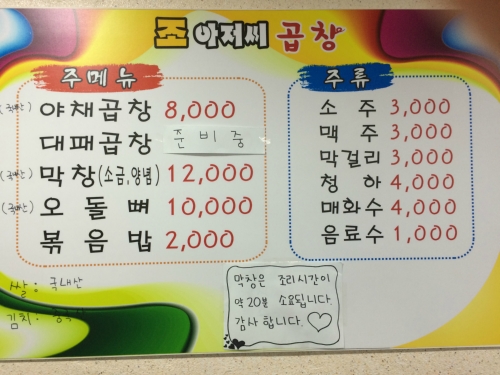 조 아저씨 곱창
주메뉴
(국내산) 야채곱창 8,000
대패곱창 준비중
(국내산) 막창(소금,양념) 12,000
(국내산) 오돌뼈 10,000
볶음밥 2,000
쌀: 국내산
김치:
주류
소주 3,000
맥주 3,000
막걸리 3,000
청하 4,000
매화수 4,000
음료수 1,000
막창은 조리시간이
약 20분 소요됩니다.
감사합니다.